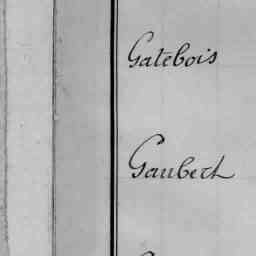 Gatebois
Gaubert